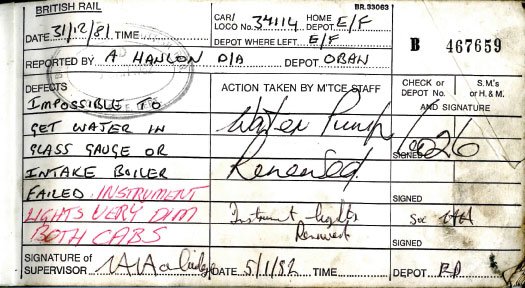 BRITISH RAIL BR.33063
DATE 31/12/81 TIME CAR/ LOCO No. 37114 HOME DEPOT E/F
DEPOT WHERE LEFT E/F B 467659
REPORTED BY A HANLON D/A DEPOT OBAN
DEFECTS ACTION TAKEN BY M'TCE STAFF CHECK or DEPOT No. S.M's or H. & M. AND SIGNATURE
IMPOSSIBLE TO
GET WATER IN Water Pump
GLASS GAUGE OR Renewed SIGNED
INTAKE BOILER
FAILED INSTRUMENT SIGNED
LIGHTS VERY DIM Instrument lights
BOTH CABS Renewed SIGNED
SIGNATURE OF SUPERVISOR DATE 5/1/82 TIME DEPOT